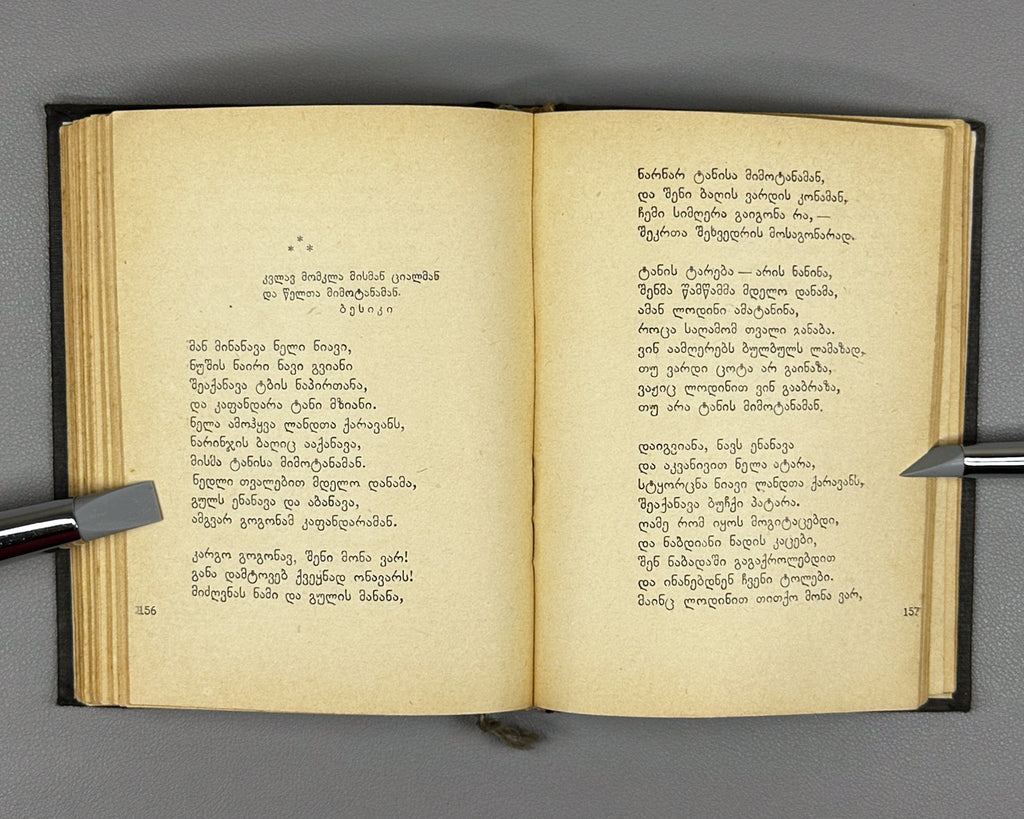 * * *
კვლავ მომკლა მისმან ციალმან
და წელთა მიმოტანამან.
ბესიკი
მან მინანავა ნელი ნიავი,
ნუშის ნაირი ნავი გვიანი
შეაქანავა ტბის ნაპირთანა,
და კაფანდარა ტანი მზიანი.
ნელა ამოჰყვა ლანდთა ქარავანს,
ნარინჯის ბაღიც ააქანავა,
მისმა ტანისა მიმოტანამან.
ნედლი თვალებით მდელო დანამა,
გულს ენანავა და აბანავა,
ამგვარ გოგონამ კაფანდარამან.
კარგო გოგონავ, შენი მონა ვარ!
განა დამტოვებ ქვეყნად ონავარს!
მიძღვნას ნამი და გულის მანანა,
156
ნარნარ ტანისა მიმოტანამან,
და შენი ბაღის ვარდის კონამან,
ჩემი სიმღერა გაიგონა რა, —
შეკრთა შეხვედრის მოსაგონარად.
ტანის ტარება — არის ნანინა,
შენმა წამწამმა მდელო დანამა,
ამან ლოდინი ამატანინა,
როცა საღამომ თვალი განაბა.
ვინ აამღერებს ბულბულს ლამაზად,
თუ ვარდი ცოტა არ გაინაზა,
ვაჟიც ლოდინით ვინ გააბრაზა,
თუ არა ტანის მიმოტანამან.
დაიგვიანა, ნავს ენანავა
და აკვანივით ნელა ატარა,
სტყორცნა ნიავი ლანდთა ქარავანს,
შეაქანავა ბუჩქი პატარა.
ღამე რომ იყოს მოგიტაცებდი,
და ნაბდიანი ნადის კაცები,
შენ ნაბადაში გაგაქროლებდით
და ინანებდნენ ჩვენი ტოლები.
მაინც ლოდინით თითქო მონა ვარ,
157